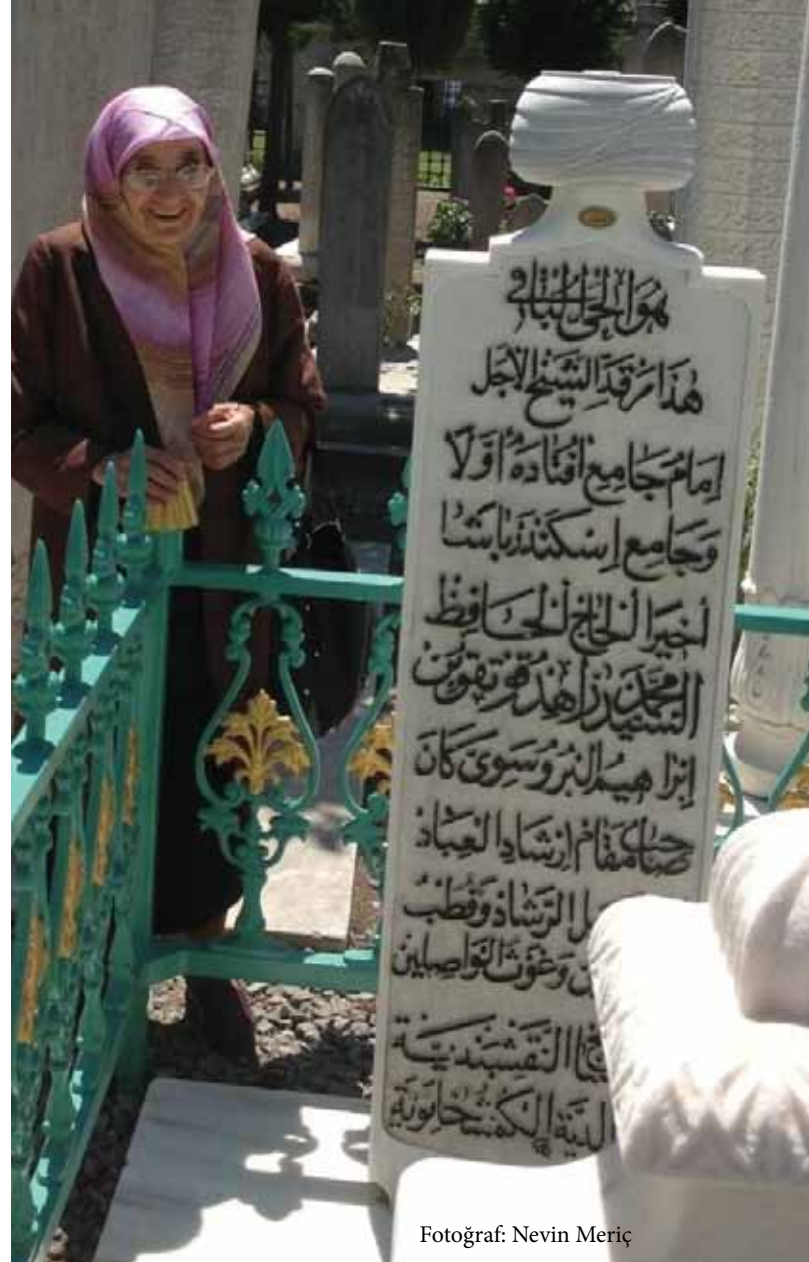 هُوَ الْحَيُّ الْبَاقِي
هٰذَا مَرْقَدُ الشَّيْخِ الْاَجَلّ
اِمَامُ جَامِعِ اُفْتَادَهْ اَوَّلًا
وَجَامِعِ اِسْكَنْدَرْ بَاشَا
اَخِيرًا اَلْحَاجّ اَلْحَافِظْ
السَّيِّدْ مُحَمَّدْ زَاهِدْ قُوتْقُو بْنْ
اِبْرَاهِيمُ الْبُرُوسَوِيّ كَانَ
صَاحِبَ مَقَامِ اِرْشَادِ الْعِبَادْ
الرَّشَادْ وَقُطْبُ
وَغَوْثُ الْوَاصِلِينَ
النَّقْشِبَنْدِيَّة
الْكُمُشْخَانَوِيَّةِ
Fotoğraf: Nevin Meriç